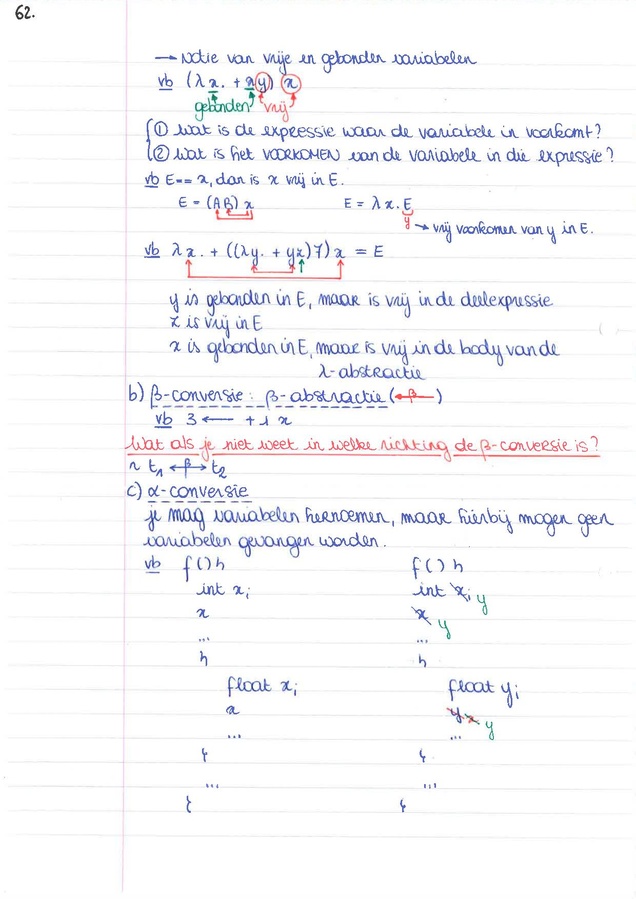 62.
→ Notie van vrije en gebonden variabelen
vb (λx. + xy) x
gebonden vrij
① Wat is de expressie waar de variabele in voorkomt?
② Wat is het VOORKOMEN van de variabele in die expressie?
vb E == x, dan is x vrij in E.
E = (AB) x E = λx. E
y → vrij voorkomen van y in E.
vb λx. + ((λy. + yz) 7) x = E
y is gebonden in E, maar is vrij in de deelexpressie
z is vrij in E
x is gebonden in E, maar is vrij in de body van de
λ-abstractie
b) β-conversie: β-abstractie (←β—)
vb 3 ← + 1 x
Wat als je niet weet in welke richting de β-conversie is?
t₁ ←β→ t₂
c) α-conversie
je mag variabelen hernoemen, maar hierbij mogen geen
variabelen gevangen worden.
vb f() { f() {
int x; int x; y
x x y
... ...
{ {
float x; float y;
x y x y
... ...
} }
... ...
} }